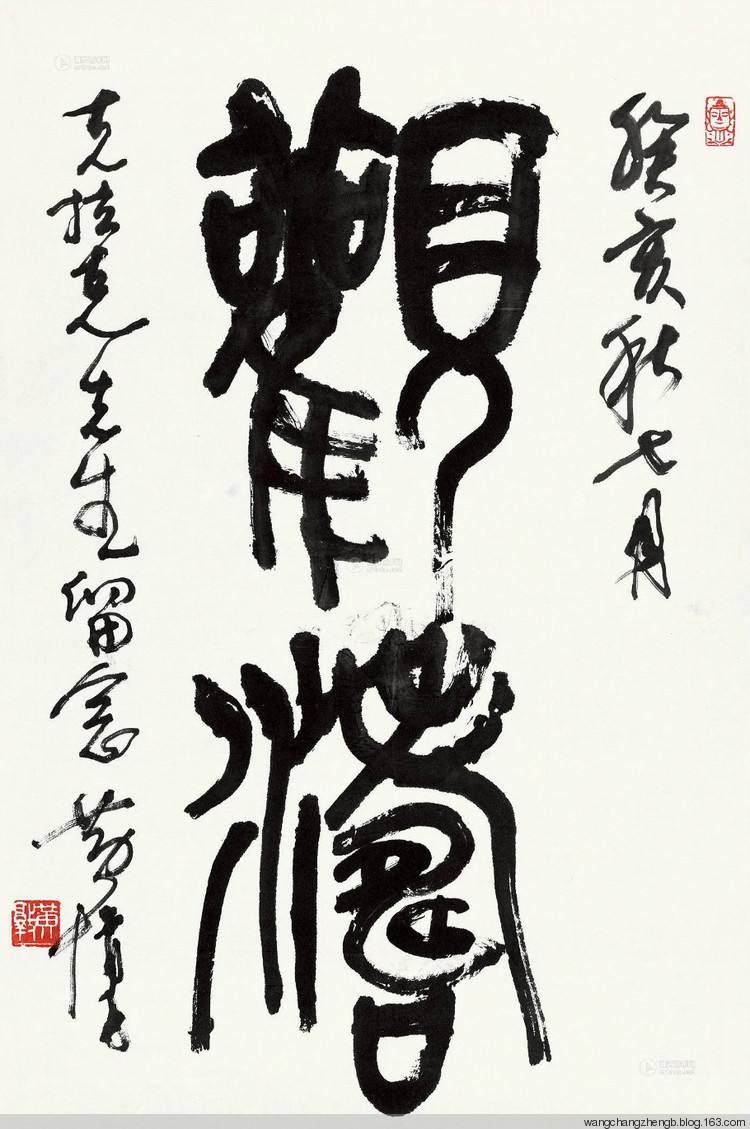 癸亥秋七月
觀濤
克拉克先生留念 黄惇
黄惇
wangchangzhengb.blog.163.com